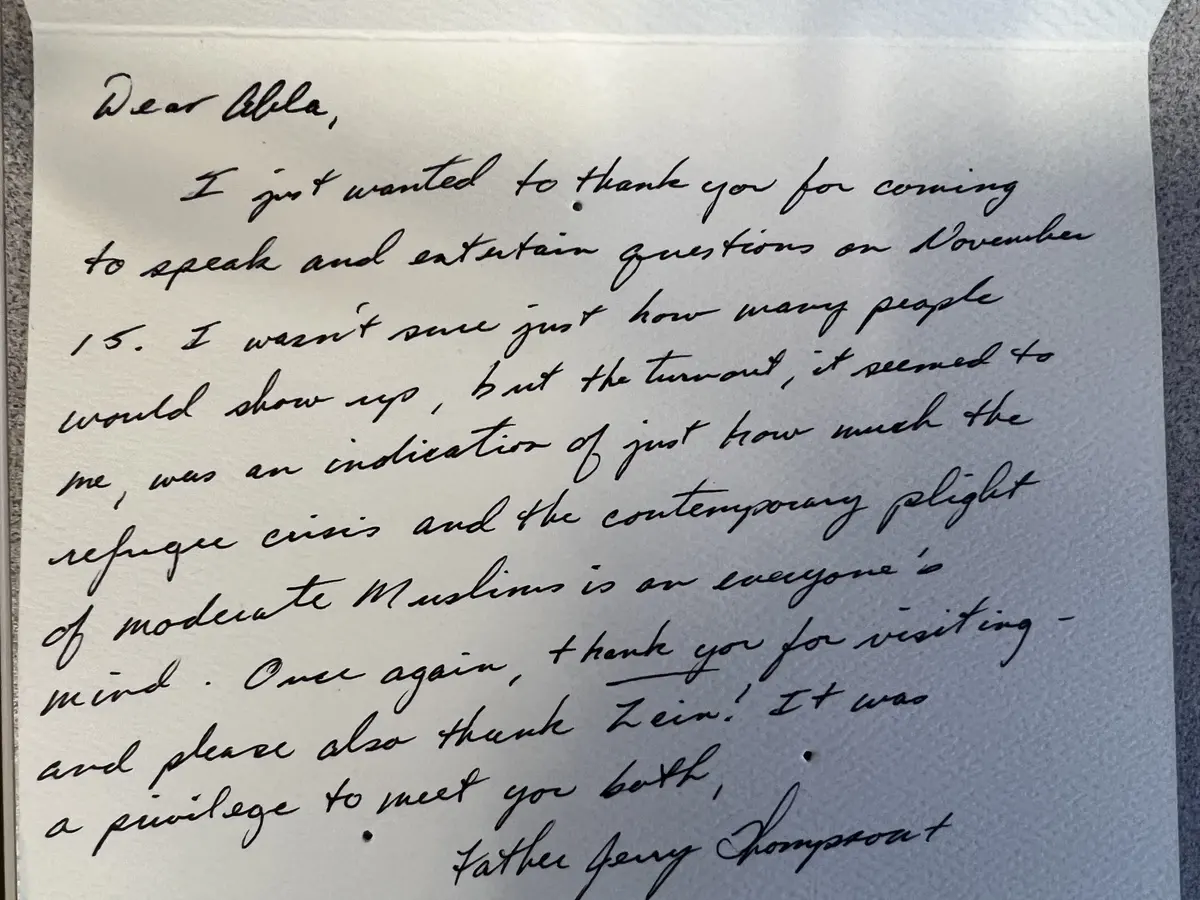 Dear Abla,
I just wanted to thank you for coming
to speak and entertain questions on November
15. I wasn't sure just how many people
would show up, but the turnout, it seemed to
me, was an indication of just how much the
refugee crisis and the contemporary plight
of moderate Muslims is on everyone's
mind. Once again, thank you for visiting -
and please also thank Zein! It was
a privilege to meet you both,
Father Jerry Thompson +